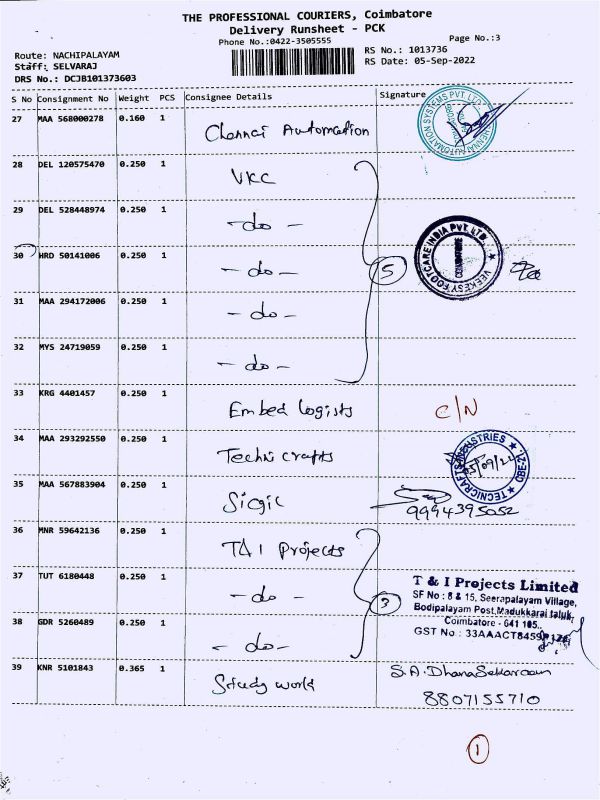 THE PROFESSIONAL COURIERS, Coimbatore
Delivery Runsheet - PCK
Phone No.:0422-3505555
Page No.:3
Route: NACHIPALAYAM
Staff: SELVARAJ
DRS No.: DCJB101373603
RS No.: 1013736
RS Date: 05-Sep-2022
S No Consignment No Weight PCS Consignee Details Signature
27 MAA 568000278 0.160 1 Chennai Automation
28 DEL 120575470 0.250 1 VKC
29 DEL 528448974 0.250 1 -do-
30 HRD 50141006 0.250 1 -do- 5
VEEKESY FOOTCARE INDIA PVT. LTD. COIMBATORE
31 MAA 294172006 0.250 1 -do-
32 MYS 24719059 0.250 1 -do-
33 KRG 4401457 0.250 1 Embed Logists C/N
34 MAA 293292550 0.250 1 Techni crafts
35 MAA 567883904 0.250 1 Sigil 9994395052
36 MNR 59642136 0.250 1 T&I Projects
37 TUT 6180448 0.250 1 -do- 3
T & I Projects Limited
SF No : 8 & 15, Seerapalayam Village,
Bodipalayam Post, Madukkarai taluk,
Coimbatore - 641 105.
GST No : 33AAACT8459
38 GDR 5260489 0.250 1 -do-
39 KNR 5101843 0.365 1 Study world S.A. Dhanasekaraan
8807155710
1